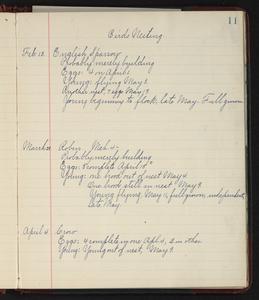 11
Birds Nesting
Feb 12. English Sparrow
Probably merely building
Eggs: 4 on April 1
Young: flying May 2
Another nest, eggs May 19
Young beginning to flock, late May. Full grown
March Robin, Mch. 4;
Probably merely building
Eggs: complete April 12
Young: one brood out of nest May 4
One brood still in nest May 9
Young flying May 11, full grown, independent,
late May.
April 4 Crow
Eggs: 4 complete in one Apl. 4, 2 in other
Young: Young out of nest, May 9.